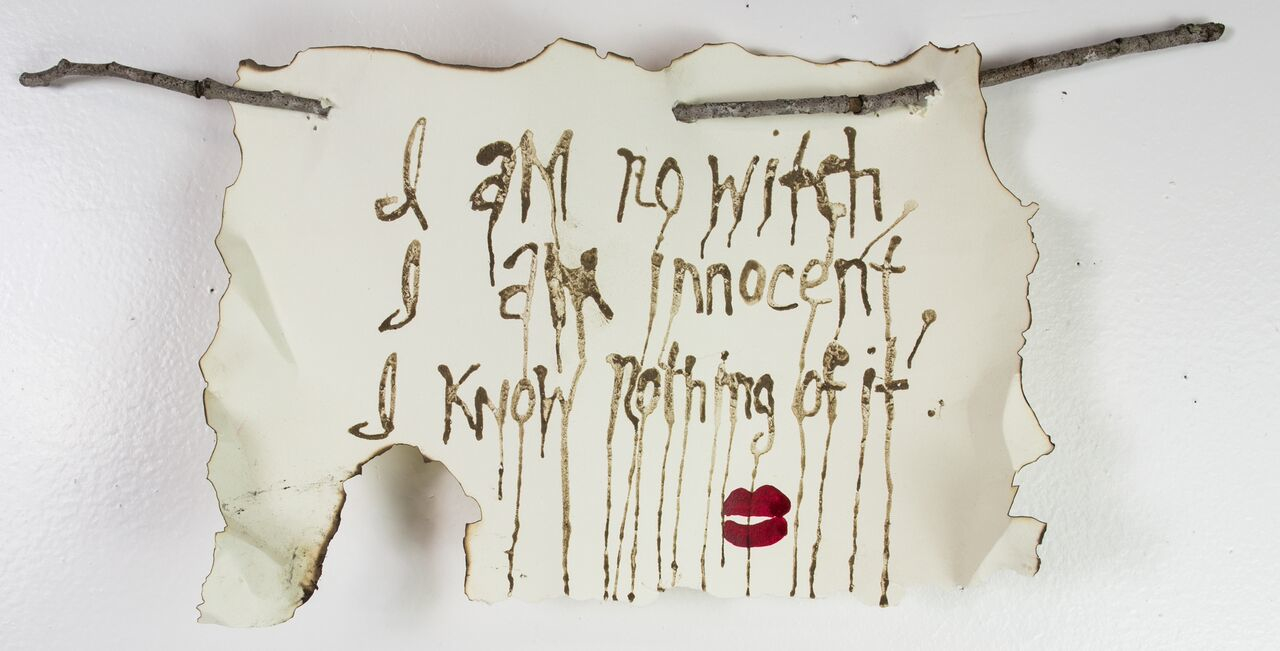 I am no witch
I am innocent
I know nothing of it!